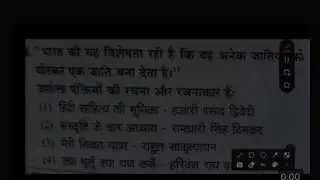 "भारत की यह विशेषता रही है कि वह अनेक जातियों को
एक जाति बना देता है।"
उपरोक्त पंक्तियों की रचना और रचनाकार हैं:
(1) हिंदी साहित्य की भूमिका - हजारी प्रसाद द्विवेदी
(2) संस्कृति के चार अध्याय - रामधारी सिंह दिनकर
(3) मेरी तिब्बत यात्रा - राहुल सांकृत्यायन
(4) क्या भूलूँ क्या याद करूँ - हरिवंश राय
0:00